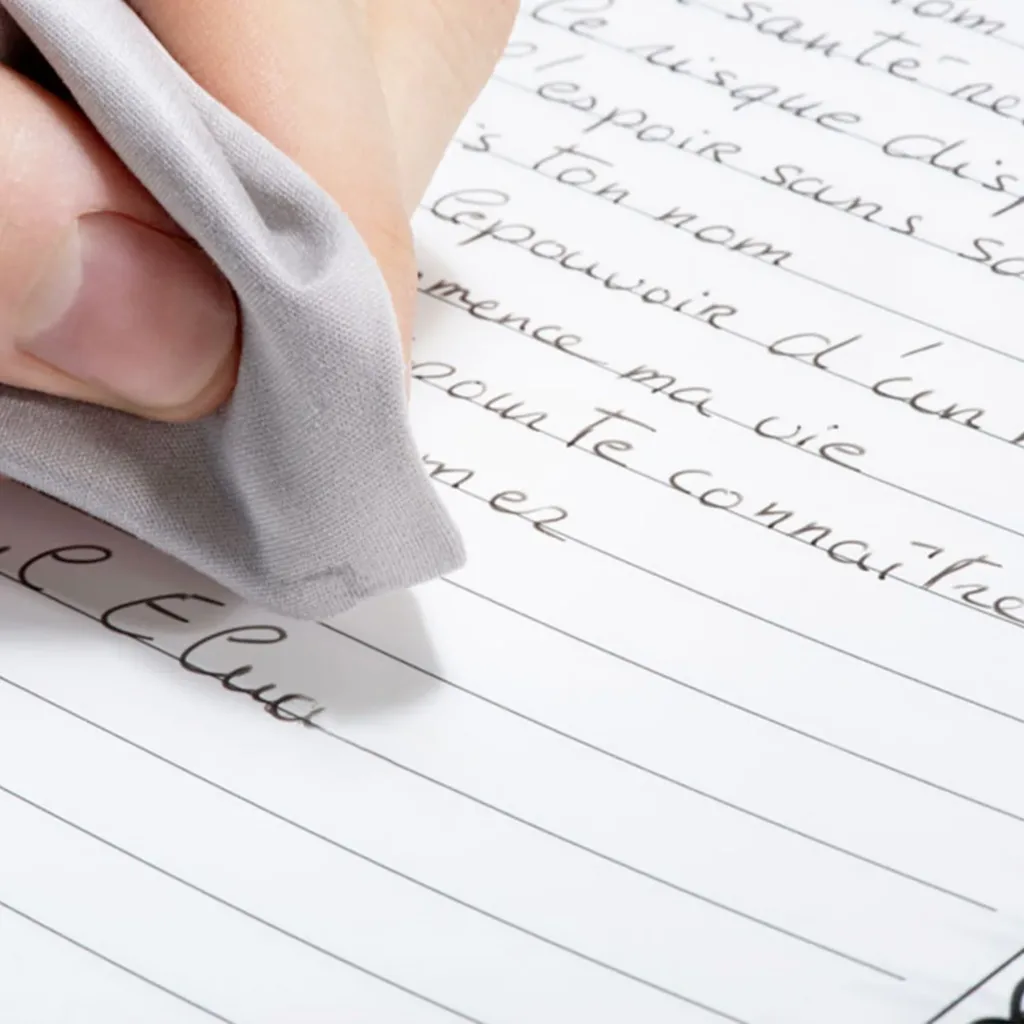 nom
santé re
le risque disp
l'espoir sans so
is ton nom
le pouvoir d'un
mence ma vie
pour te connaître
mez
l Elua